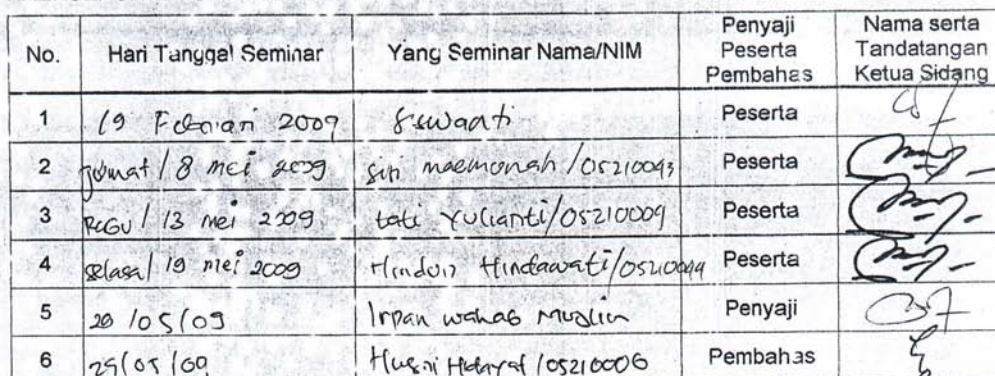 No. Hari Tanggal Seminar Yang Seminar Nama/NIM Penyaji Peserta Pembahas Nama serta Tandatangan Ketua Sidang
1 19 Februari 2009 Suwarti Peserta
2 Jumat / 8 mei 2009 Siti maemonah / 05210043 Peserta
3 RaGu / 13 mei 2009 tati Yulianti / 05210009 Peserta
4 Selasa / 19 mei 2009 Hindun Hindawati / 05210044 Peserta
5 20 / 05 / 09 Irpan wahab Muslim Penyaji
6 29 / 05 / 09 Husni Hidayat / 05210006 Pembahas